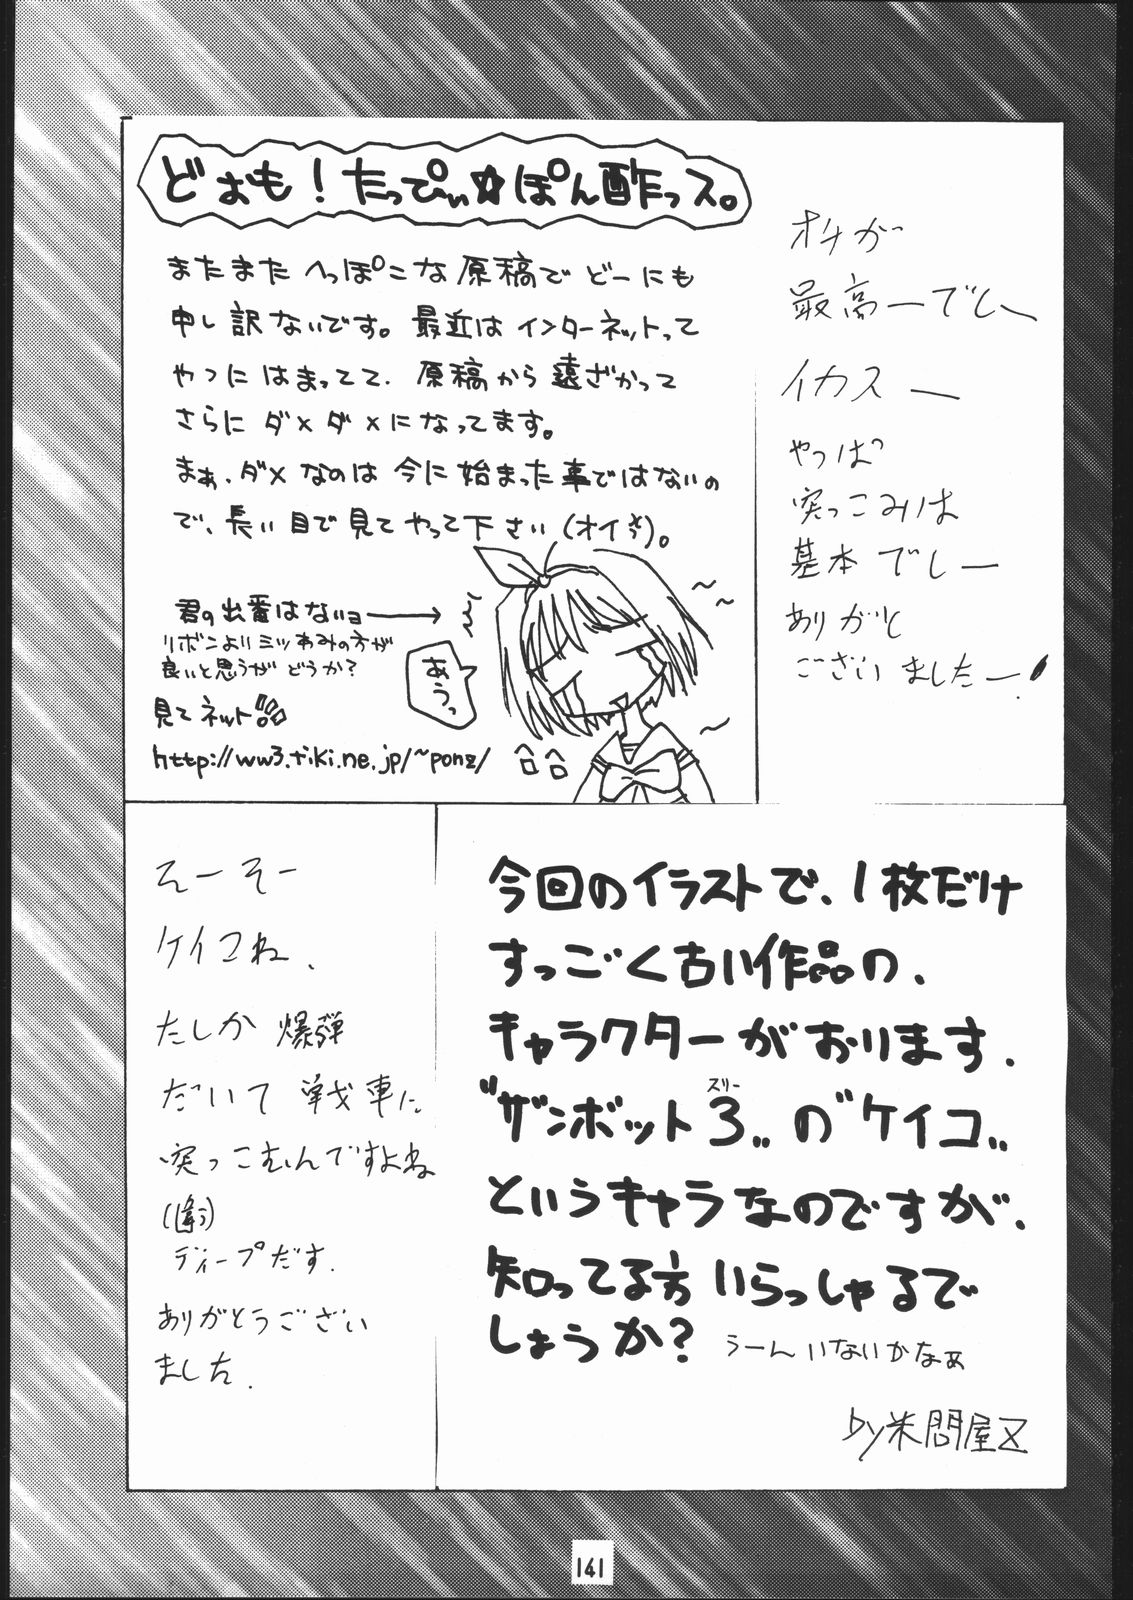 どぉも!たっぴぃ☆ぽん酢っス。
またまた へっぽこな 原稿で どーにも
申し訳ないです。最近は インターネットって
やつに はまってて、原稿から 遠ざかって
さらに ダメダメになってます。
まぁ、ダメなのは 今に始まった事ではないの
で、長い目で見てやって下さい(オイ)。
君の出番はないョ
リボンより ミツあみの方が
良いと思うが どうか?
あうっ
見てネット
http://ww3.tiki.ne.jp/~ponz/
オチが
最高ーでしー
イカスー
やっぱっ
突っこみは
基本でしー
ありがと
ございましたー!
そーそー
ケイコね、
たしか 爆弾
だいて 戦車に
突っこむんですよね
(違う)
ディープだす.
ありがとうござい
ました.
今回のイラストで、1枚だけ
すっごく古い作品の、
キャラクターがおります.
スリー
"ザンボット3"の"ケイコ"
というキャラなのですが、
知ってる方 いらっしゃるで
しょうか? うーん いないかなぁ
by米問屋Z
141